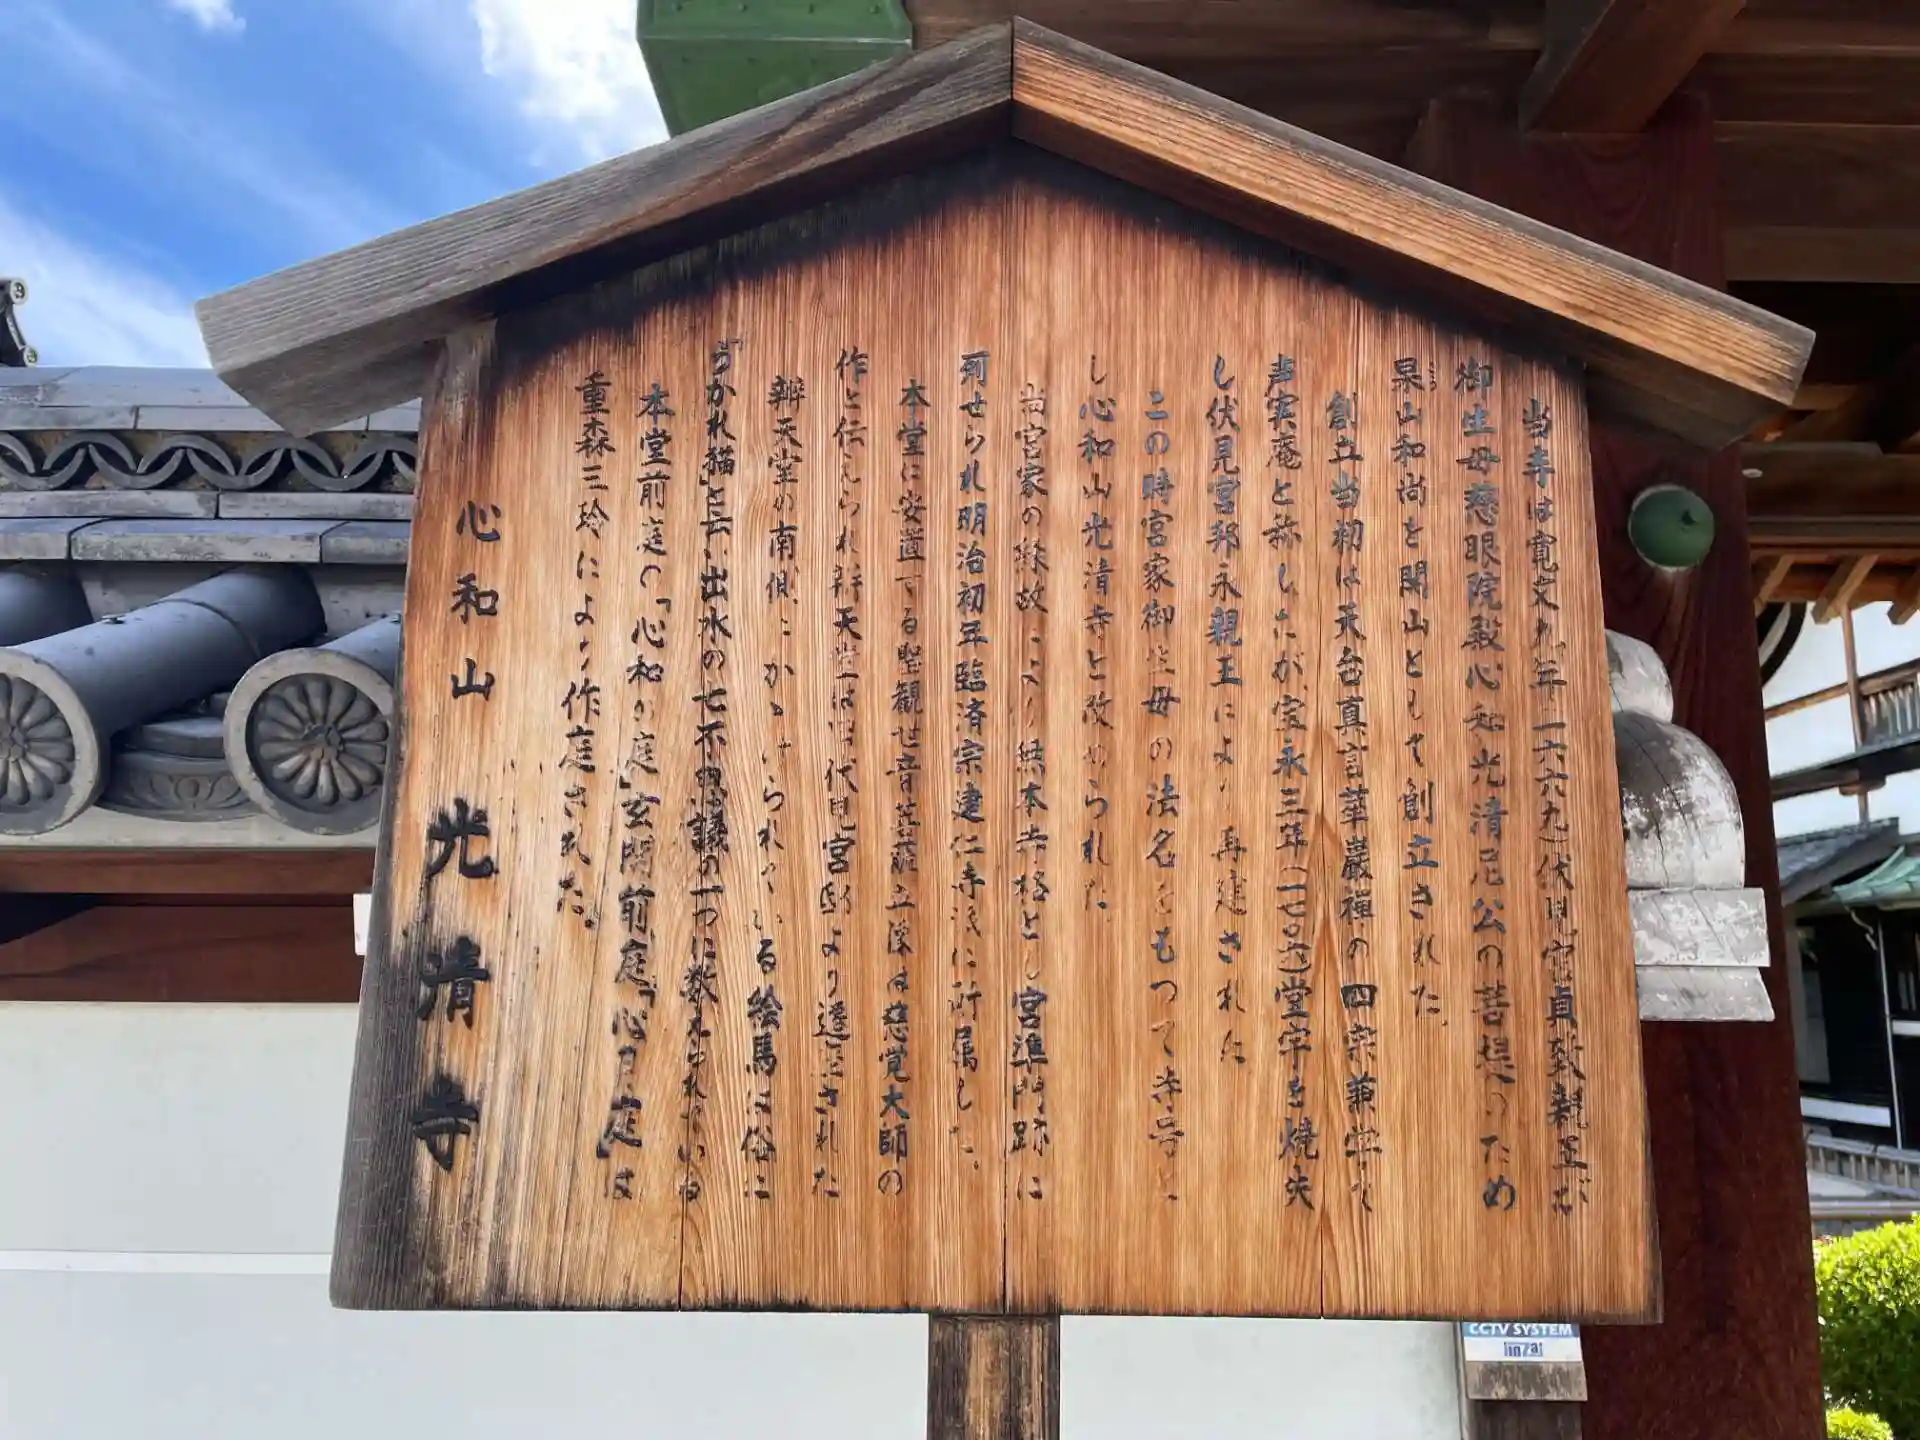 当寺は寛文九年(一六六九)伏見宮貞致親王が
御生母慈眼院殿心和光清尼公の菩提のため
杲山和尚を開山として創立された。
創立当初は天台真言華厳禅の四宗兼学で
声実庵と称したが、宝永三年(一七〇六)堂宇を焼失
し伏見宮邦永親王により再建された
この時宮家御生母の法名をもつて寺号と
し心和山光清寺と改められた
当宮家の縁故により無本寺格とし宮準門跡に
列せられ明治初年臨済宗建仁寺派に所属した。
本堂に安置する聖観世音菩薩立像は慈覚大師の
作と伝えられ辨天堂は旧代見宮邸より遷座された
辨天堂の南側にかかげられている絵馬は俗に
「うかれ猫」と云い出水の七不思議の一つに数えられている
本堂前庭の「心和の庭」玄関前庭「心月庭」は
重森三玲により作庭された。
心和山 光清寺
CCTV SYSTEM